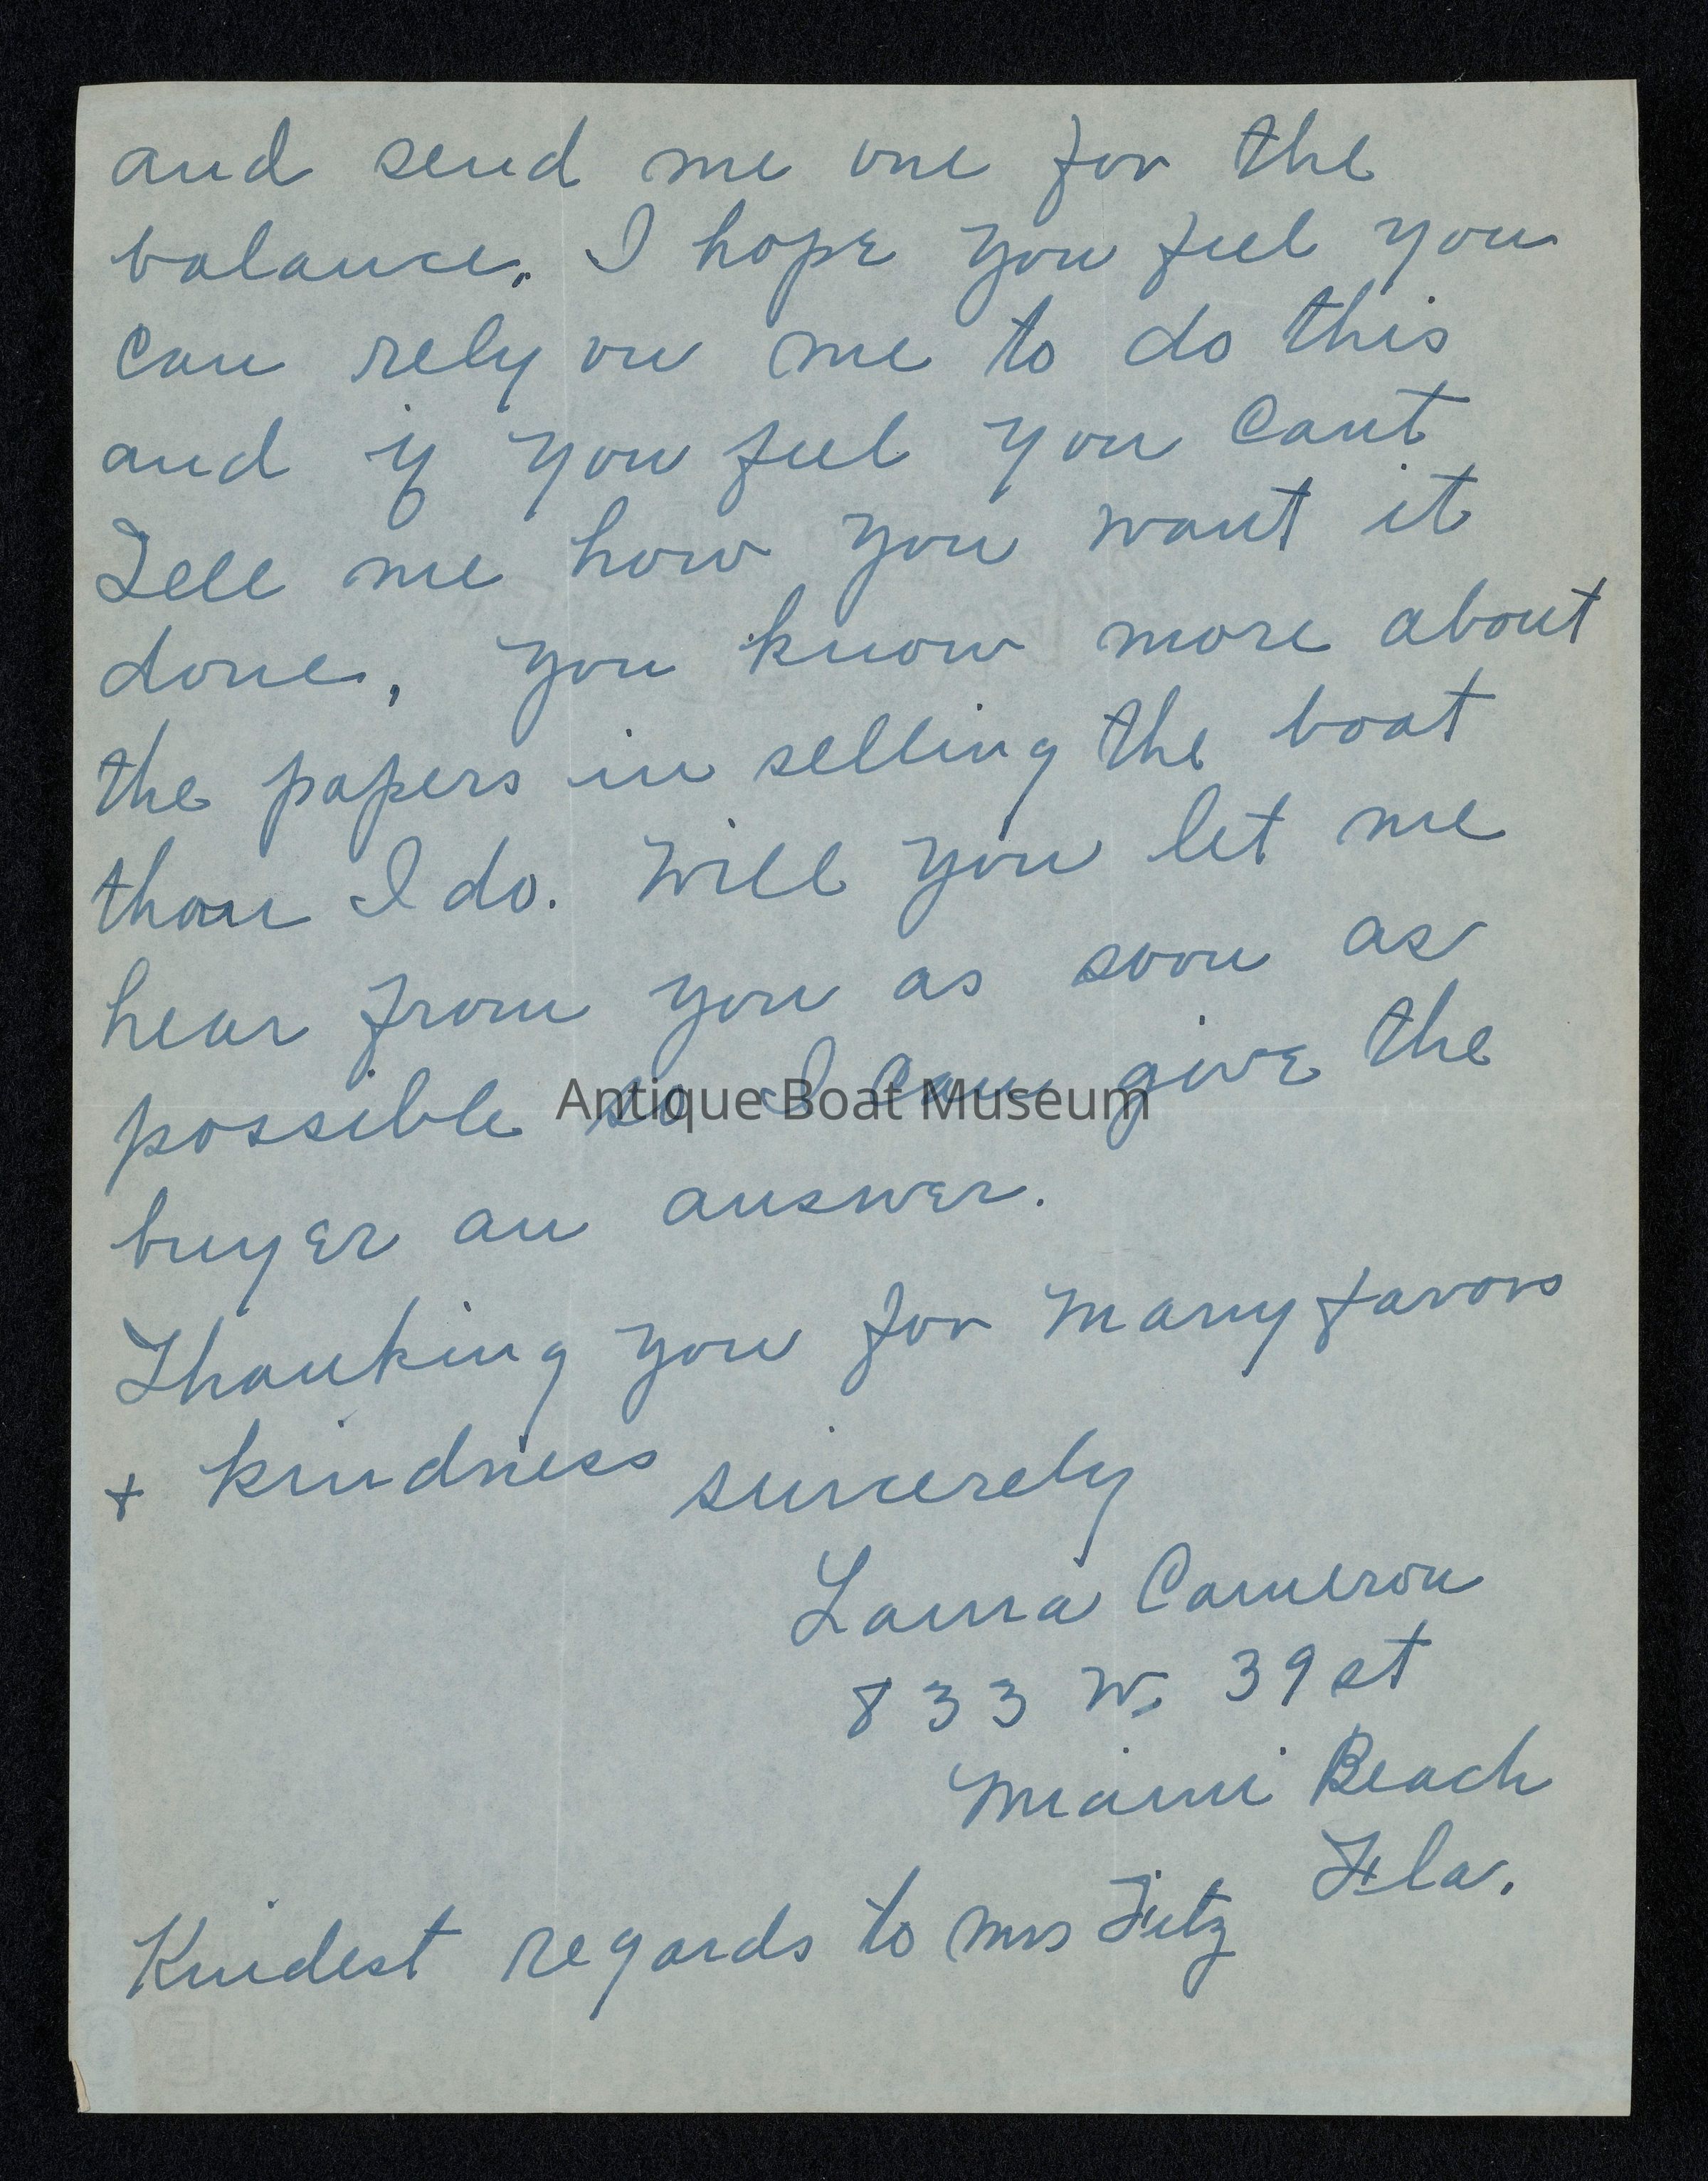 and send me one for the
balance. I hope you feel you
can rely on me to do this
and if you feel you cant
Tell me how you want it
done, you know more about
the papers in selling the boat
than I do. Will you let me
hear from you as soon as
possible so I can give the
Antique Boat Museum
buyer an answer.
Thanking you for many favors
+ kindness sincerely
Laura Cameron
833 W. 39 st
Miami Beach
Fla.
Kindest regards to Mrs Fitz